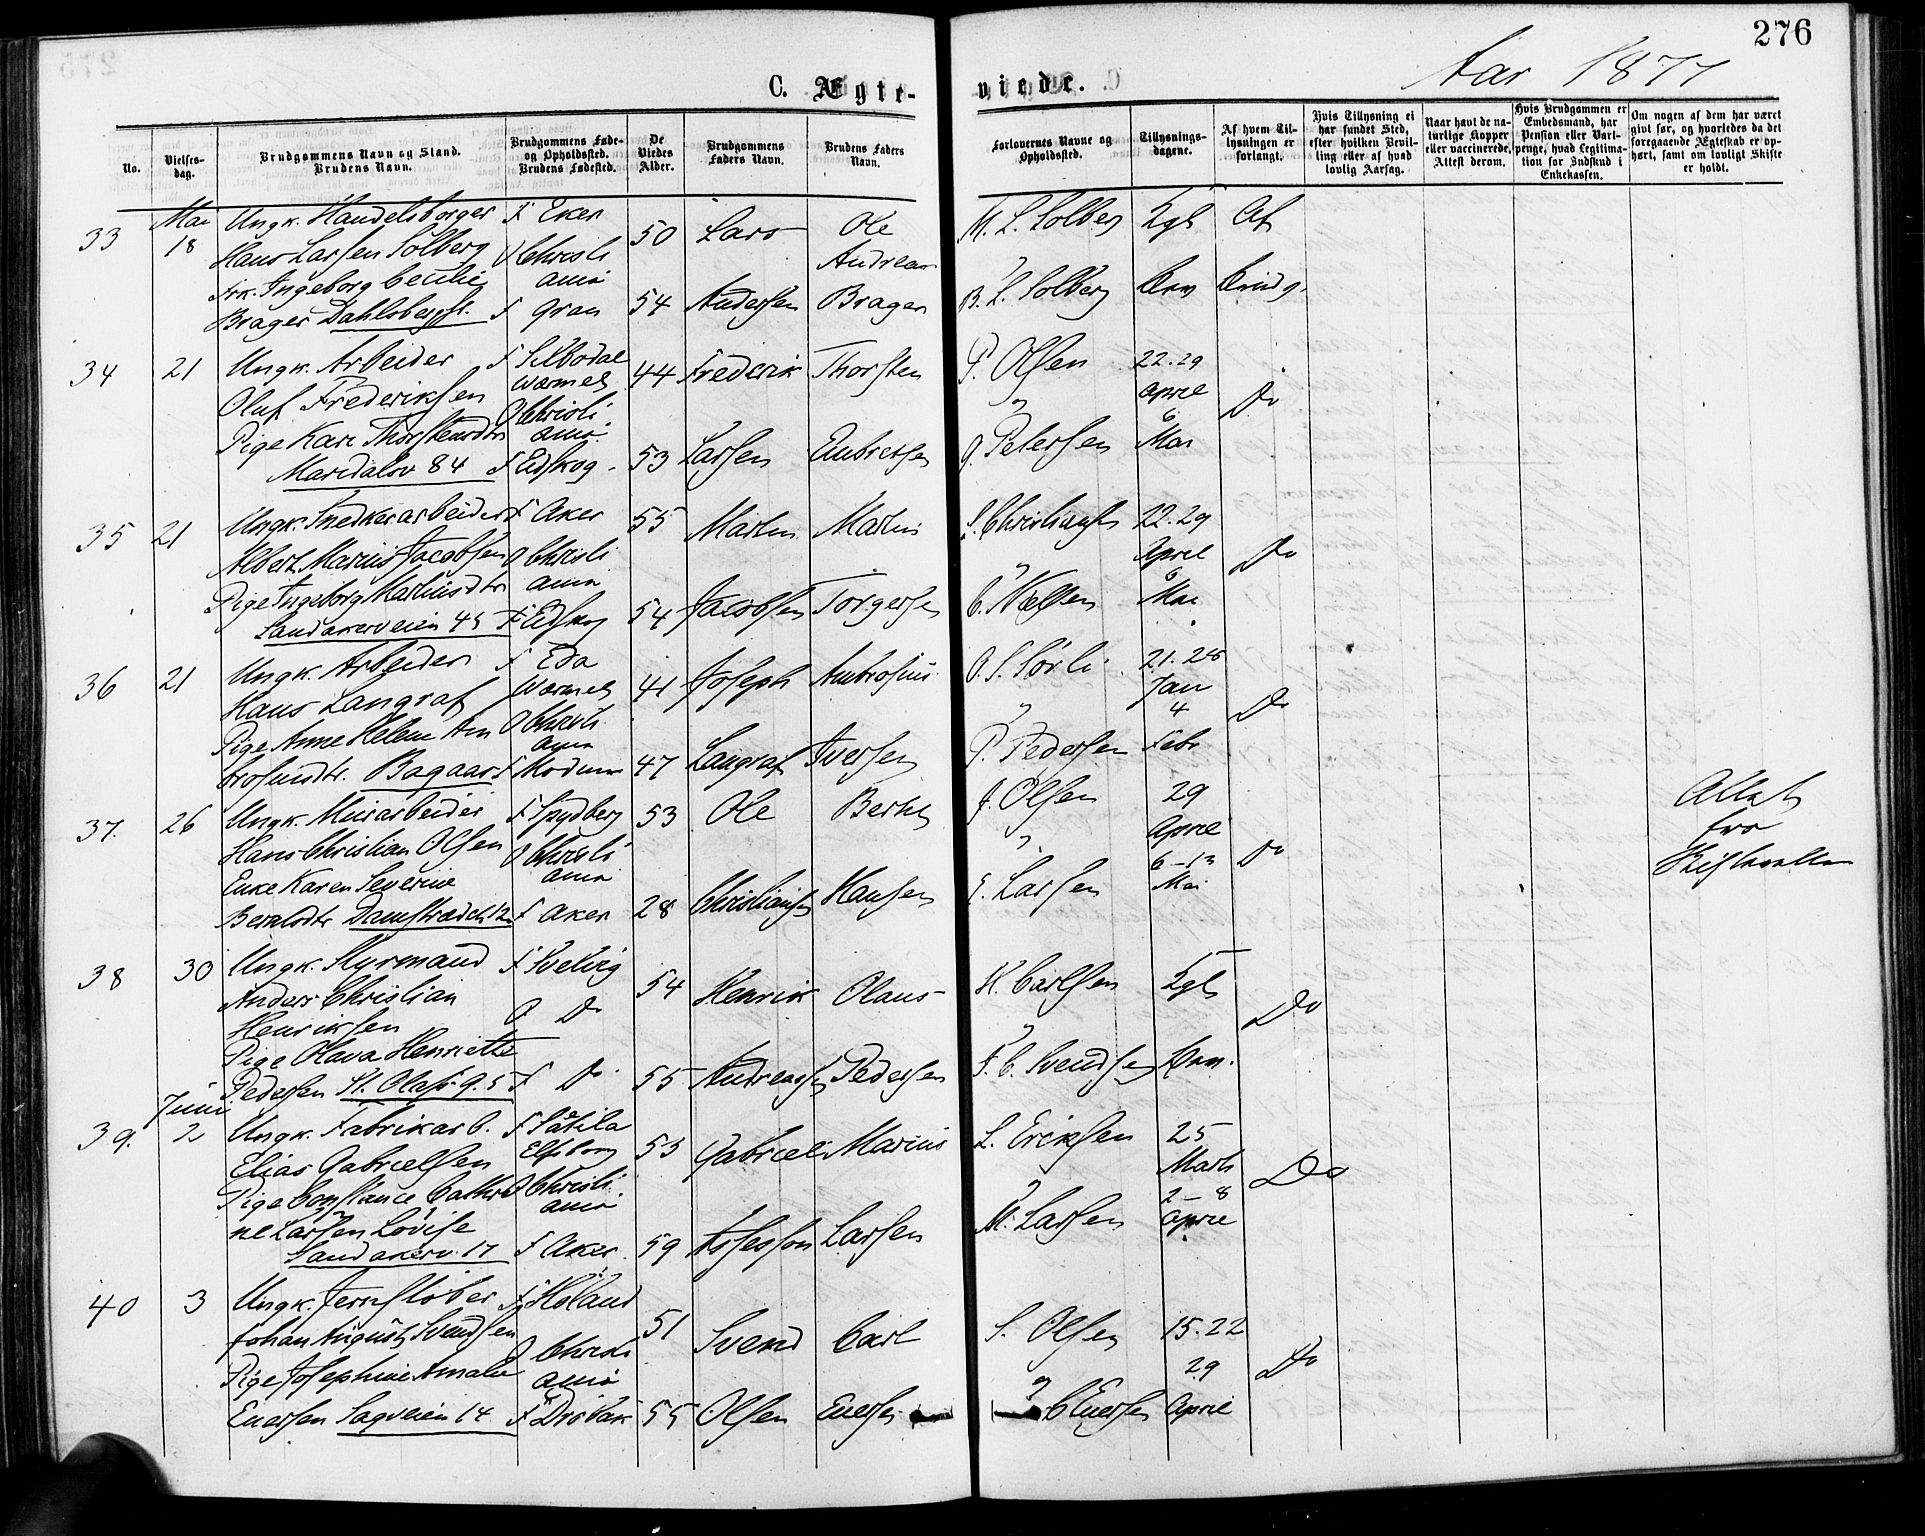 276
Aar 1877
C. Ægte-
viede.
No.
Vielses-
dag.
Brudgommens Navn og Stand.
Brudens Navn.
Brudgommens Føde-
og Opholdssted.
Brudens Fødested.
De
Viedes
Alder.
Brudgommens
Faders Navn.
Brudens Faders
Navn.
Forlovernes Navne og
Opholdssted.
Tillysnings-
dagene.
Af hvem Til-
lysningen er
forlangt.
Hvis Tillysning ei
har fundet Sted,
efter hvilken Bevil-
ling eller af hvad
lovlig Aarsag.
Naar havt de na-
turlige Kopper
eller vaccinerede,
Attest derom.
Hvis Brudgommen er
Embedsmand, har
Pension eller Vart-
penge, hvad Legitima-
tion for Indskud i
Enkekassen.
Om nogen af dem har været
givt før, og hvorledes da det
foregaaende Ægteskab er op-
hørt, samt om lovligt Skifte
er holdt.
33 Mai 18 Ungk. Handelsborger F Eker 50 Lars Ole M. L. Solberg Kgl Af
Hans Larsen Solberg O Christi Andreas
Frk. Ingeborg Cecilie ania
Brager Dahlsbergst. F Gran 54 Andersen Brager B. L. Solberg Brudg.
34 21 Ungk. Arbeider F Silbodal 44 Frederik Thorsten P. Olsen 22. 29
Oluf Frederiksen Wermel. April Do
Pige Kari Thorstensdtr O Christi ania 6
Maridalsv 84 F Eidskog 53 Larsen Embretsen G. Petersen Mai
35 21 Ungk. Snedkerarbeider F Aker 55 Martin Martin S. Christiansen 22. 29
Albert Marius Jacobsen O Christi April Do
Pige Ingeborg Martinsdtr ania 6
Sandakerveien 45 F Eidskog 54 Jacobsen Torgersen C. Nielsen Mai
36 21 Ungk. Arbeider F Eda 41 Joseph Ambrosius O. S. Sörli 21. 28
Hans Langraf Wermel. Jan
Pige Anne Helene Am O Christi ania 4 Do
brosiusdtr. Bagaas F Modum 47 Langraf Iversen P. Pedersen Febr
37. 26 Ungk. Murarbeider F Spydberg 53 Ole Bernt J. Olsen 29 Attest
Hans Christian Olsen O Christi April fra
Enke Karen Severine ania 6-13 Do Skifteretten
Berntsdtr Damstrædet 12 F Aker 28 Christiansen Hansen E. Larsen Mai
38 30 Ungk. Styrmand F Svelvig 54 Henrik Olaus H. Carlsen Kgl
Anders Christian O Do Do
Henriksen
Pige Olava Henriette
Pedersen St. Olafs g. 5 F Do 55 Andreassen Pedersen F. C. Svendsen
39. Juni 2 Ungk. Fabrikarb. F Sätila 53 Gabriel Marius L. Eriksen 25
Elias Gabrielsen Elfsborg Marts Do
Pige Constance Cathri O Christi 2-8
ne Larsen Lovise ania M. Larsen April
Sandakerv. 17 F Aker 59 Larsen
40 3 Ungk. Jernstöber F Höland 51 Svend Carl S. Olsen 15. 22
Johan August Svendsen O Christi 29 Do
Pige Josephine Amalie ania
Enersen Sagveien 14 F Dröbak 55 Olsen Enersen C Enersen April